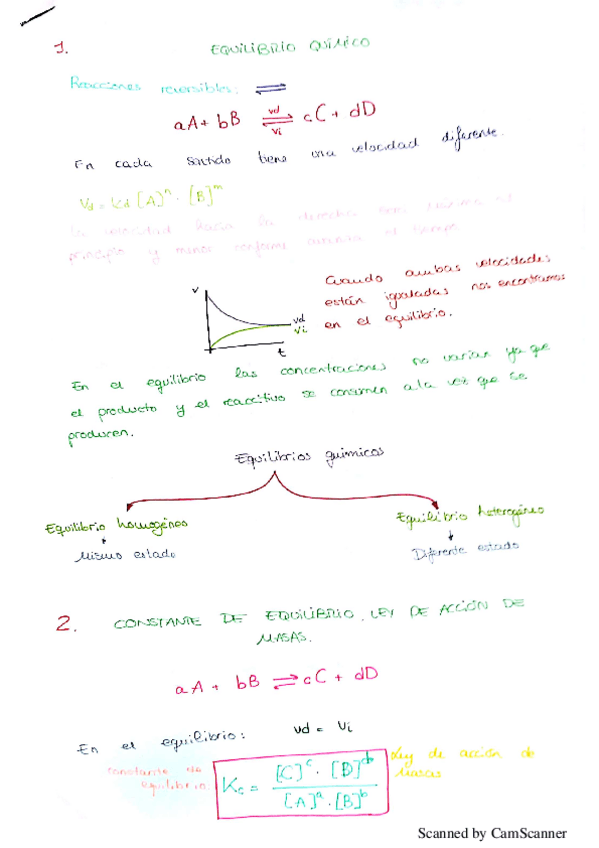 1. EQUILIBRIO QUÍMICO
Reacciones reversibles: ⇌
aA + bB ⇌ cC + dD
vd
vi
En cada sentido tiene una velocidad diferente.
Vd = kd [A]ⁿ · [B]ᵐ
La velocidad hacia la derecha será máxima al
principio y menor conforme avanza el tiempo
v
vd
vi
t
Cuando ambas velocidades
están igualadas nos encontramos
en el equilibrio.
En el equilibrio las concentraciones no varían ya que
el producto y el reactivo se consumen a la vez que se
producen.
Equilibrios químicos
Equilibrio homogéneo
Mismo estado
Equilibrio heterogéneo
Diferente estado
2. CONSTANTE DE EQUILIBRIO. LEY DE ACCIÓN DE
MASAS.
aA + bB ⇌ cC + dD
En el equilibrio: vd = vi
constante de
equilibrio:
Kc = [C]ᶜ · [D]ᵈ / [A]ᵃ · [B]ᵇ
Ley de acción de
Masas
Scanned by CamScanner